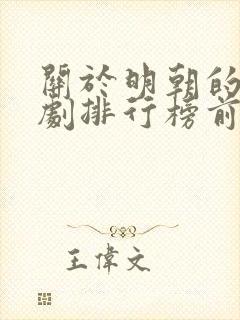 關於明朝的
劇排行榜前
王偉文